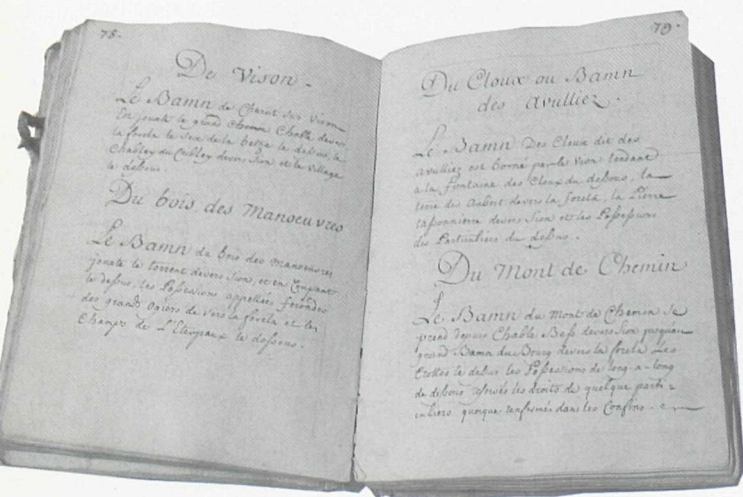 78.
De Vison -
Le Bamn de Charat sur Vison
En jouate le grand chemin Chable devers
la foreta le Sex de la Betza le dessus, le
Chablay du devers Sion et le village
le dessous.
Du bois des Manoeuvres
Le Bamn du bois des Manoeuvres
jouate le torrent devers Sion, et en Coupant
le dessus, les Possessions appellées
des grands devers la foreta et les
Champs de le dessous.
79.
Du Cloux ou Bamn
des Avulliez.
Le Bamn Des Cloux dit des
avulliez est borné par le Vison tendant
a la fontaine des Cloux du dessous, la
terre des Aubert devers la foreta, la Pierre
tassonniere devers Sion et les Possessions
des Particuliers du dessus.
Du Mont de Chemin
Le Bamn du Mont de Chemin se
prend depuis Chable Bess devers Sion jusqu'au
grand Bamn du Bourg devers la foreta Les
Crettes le dessus les Possessions de long-a-long
du dessous reservés les droits de quelque parti=
culiers quoique renfermés dans les Confins.